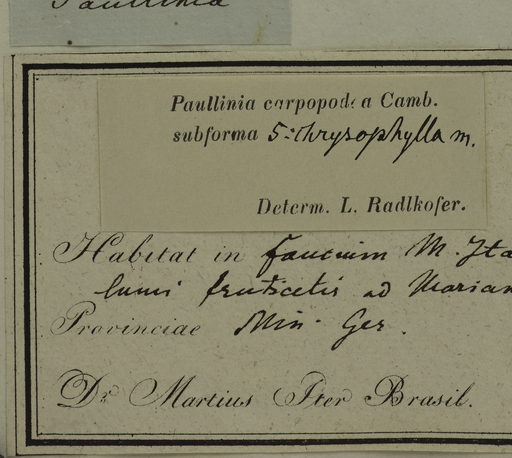 Paullinia
Paullinia carpopodea Camb.
subforma 5: chrysophylla m.
Determ. L. Radlkofer.
Habitat in faucium M. Ita
lumi fruticetis ad Marian
Provinciae Min. Ger.
Dr. Martius Iter Brasil.